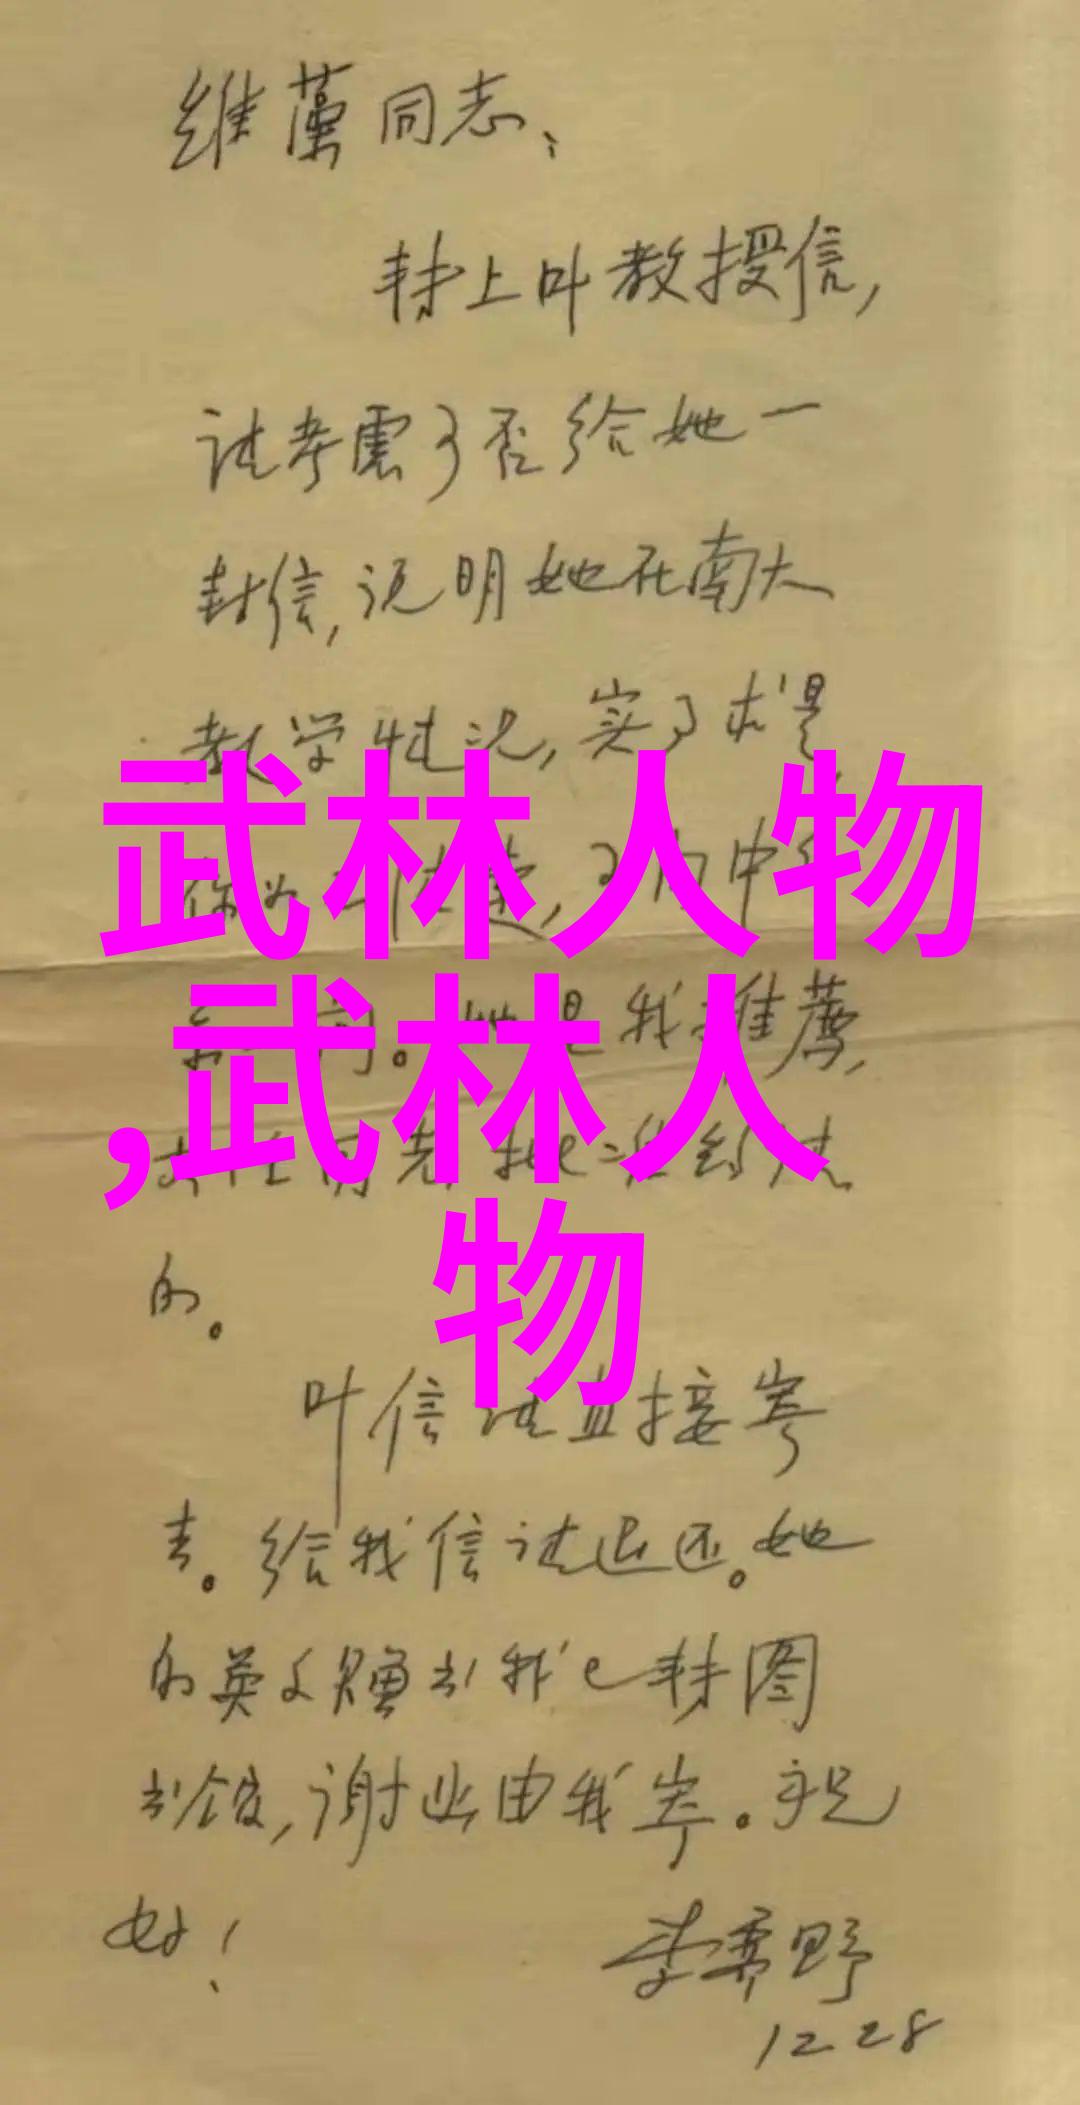 维藻同志、
转上叶教授信,
请考虑可否给她一
封信,说明她在南大
教学情况,实事求是,
武林人物
,武林人
物
她是我推荐,
的。
叶信请直接寄
去。给我信请退还。她
的英文赠书我已转图
书馆,谢业由我寄。祝
好!
李霁野
12 28